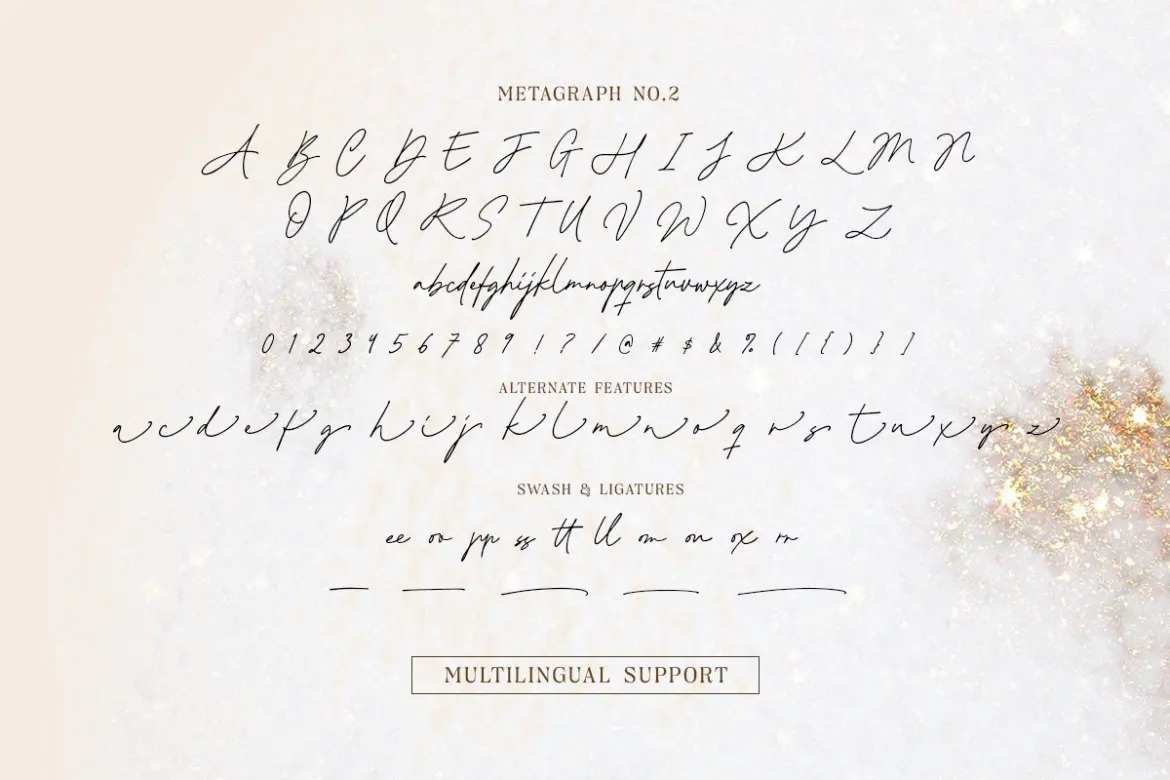 METAGRAPH NO.2
A B C D E F G H I J K L M N
O P Q R S T U V W X Y Z
abcdefghijklmnopqrstuvwxyz
0 1 2 3 4 5 6 7 8 9 ! ? / @ # $ & % ( [ { ) } ]
ALTERNATE FEATURES
a c d e f g h i j k l m n o q r s t u x y z
SWASH & LIGATURES
ee oo pp ss tt ll om on ox rr
MULTILINGUAL SUPPORT